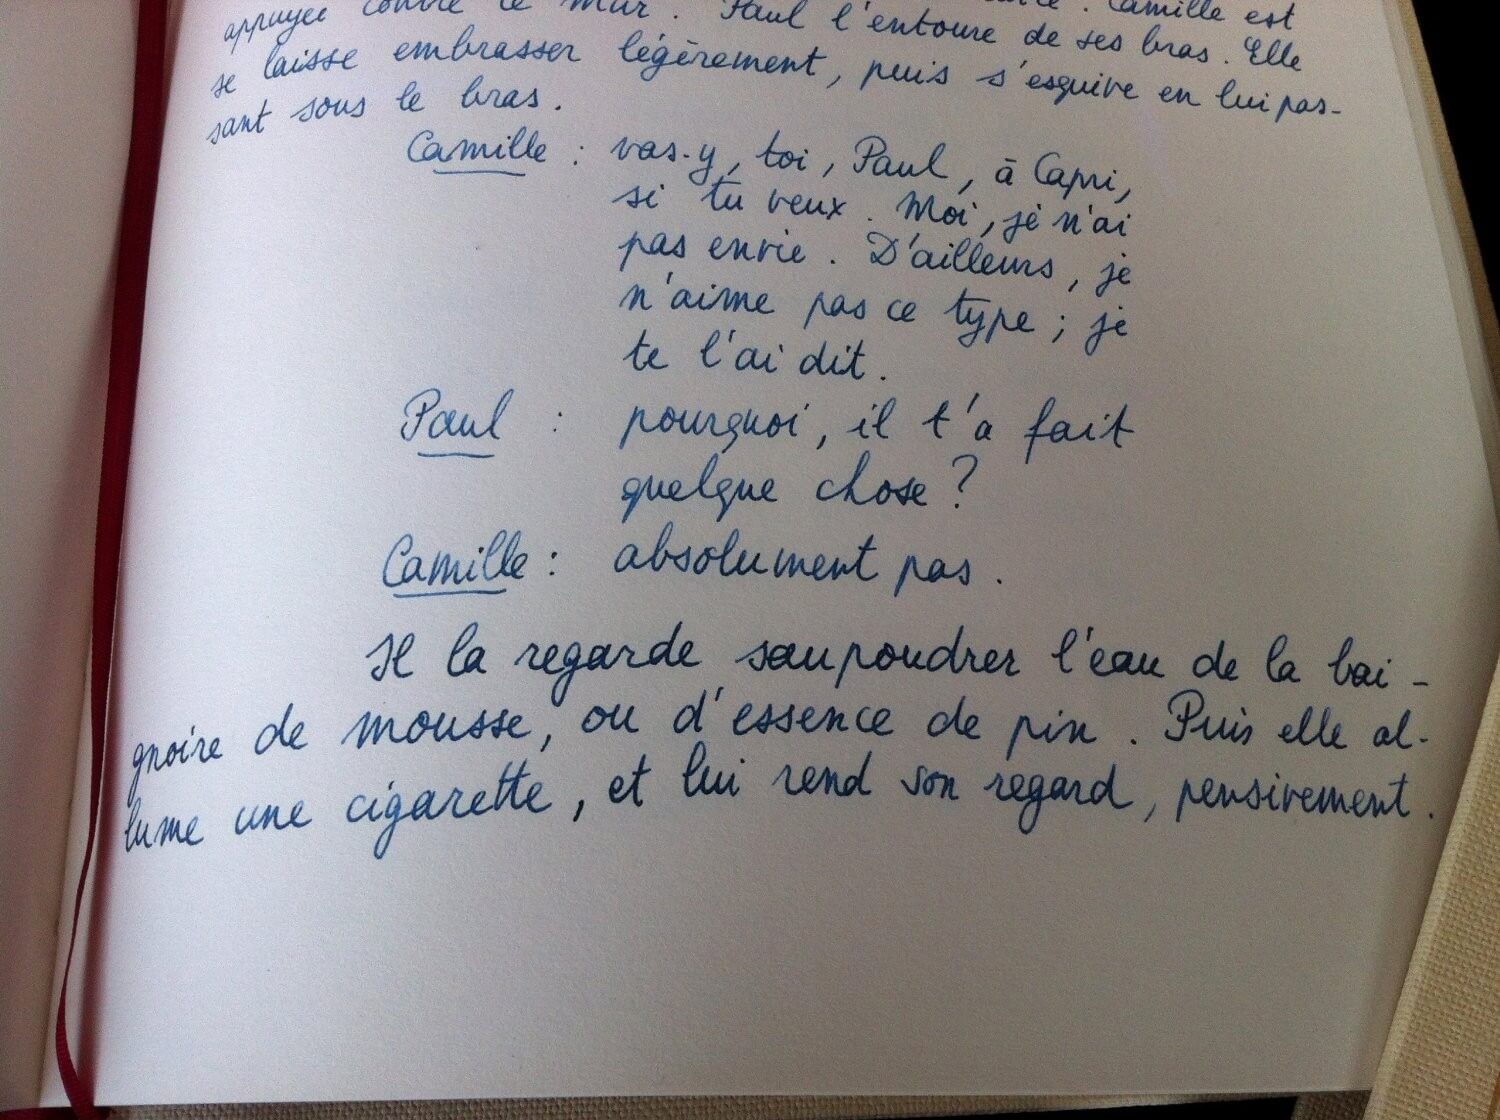 appuyée contre le mur. Paul l'entoure de ses bras. Camille est
se laisse embrasser légèrement, puis s'esquive en lui pas- Elle
sant sous le bras.
Camille : vas-y, toi, Paul, à Capri,
si tu veux. Moi, je n'ai
pas envie. D'ailleurs, je
n'aime pas ce type ; je
te l'ai dit.
Paul : pourquoi, il t'a fait
quelque chose ?
Camille : absolument pas.
Il la regarde saupoudrer l'eau de la bai-
gnoire de mousse, ou d'essence de pin. Puis elle al-
lume une cigarette, et lui rend son regard, pensivement.